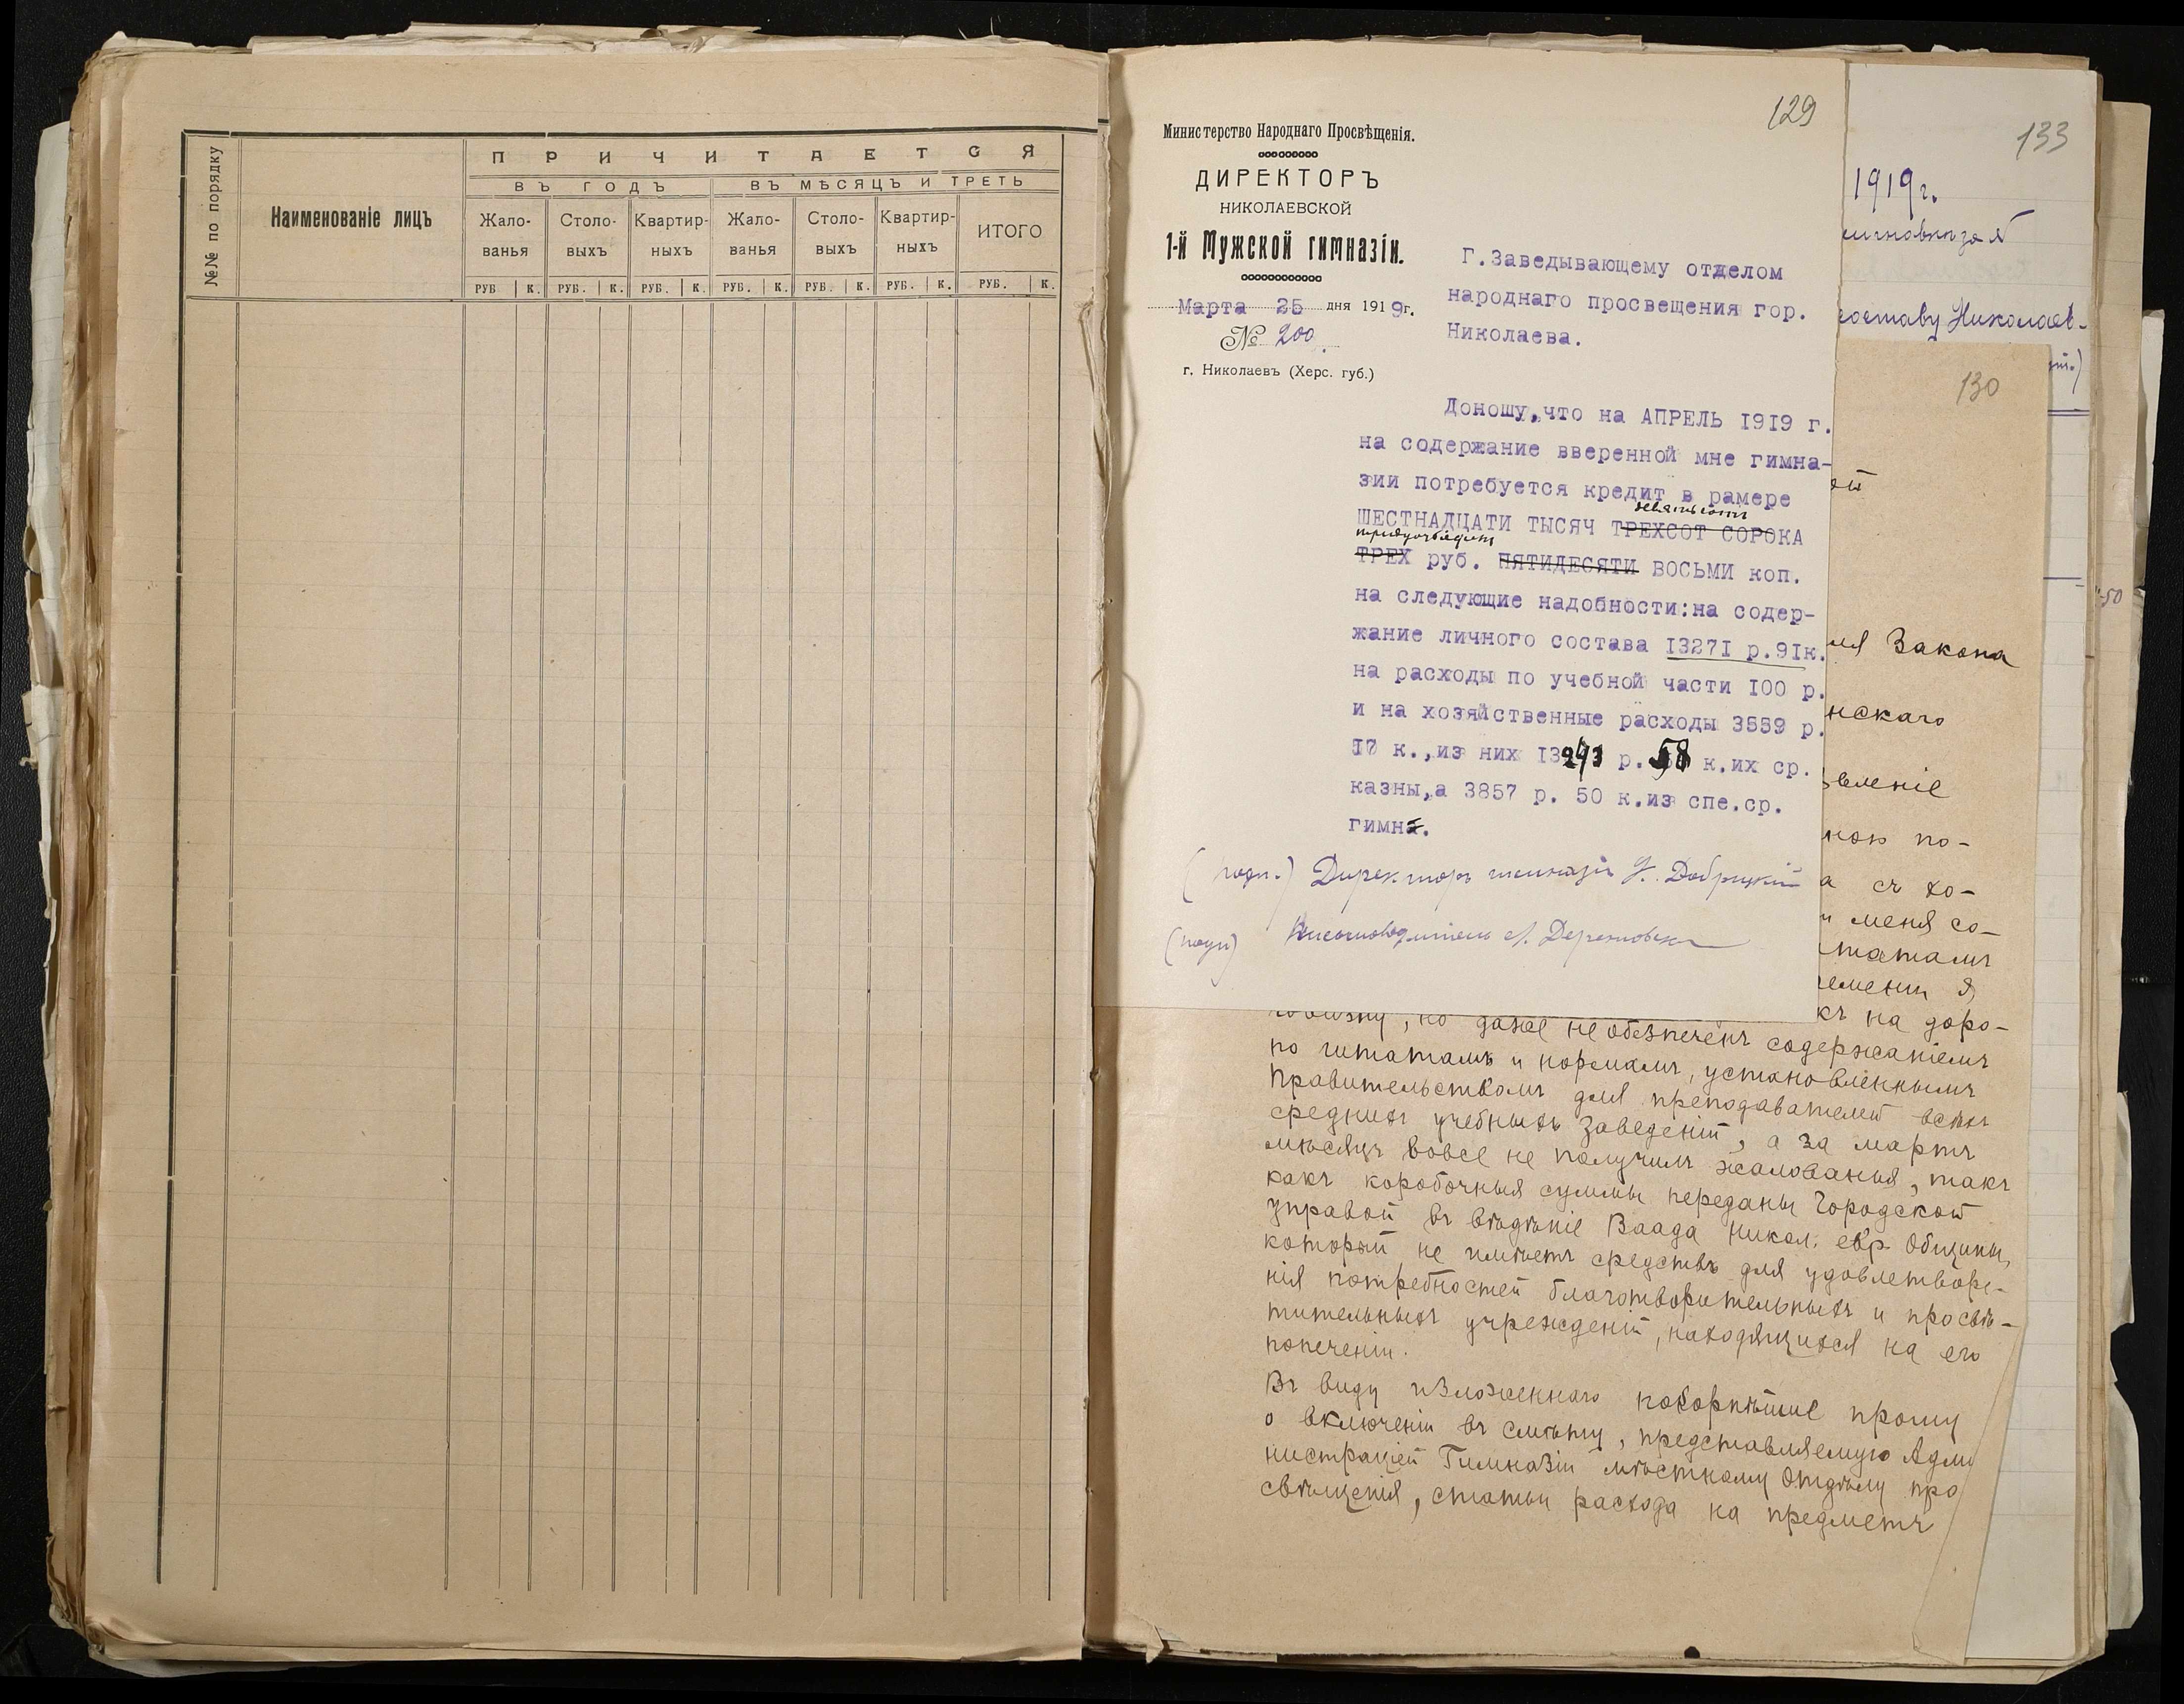 №№ по порядку
Наименованіе лицъ
ПРИЧИТАЕТСЯ
ВЪ ГОДЪ
ВЪ МѢСЯЦЪ И ТРЕТЬ
Жало-
ванья
Столо-
выхъ
Квартир-
ныхъ
Жало-
ванья
Столо-
выхъ
Квартир-
ныхъ
ИТОГО
РУБ К. РУБ. К. РУБ. К. РУБ. К. РУБ. К. РУБ. К. РУБ. К.
129
Министерство Народнаго Просвѣщенія.
ДИРЕКТОРЪ
НИКОЛАЕВСКОЙ
1-й Мужской гимназіи.
Марта 25 дня 1919г.
№ 200.
г. Николаевъ (Херс. губ.)
Г.Заведывающему отделом
народнаго просвещения гор.
Николаева.
Доношу,что на АПРЕЛЬ 1919 г.
на содержание вверенной мне гимна-
зии потребуется кредит в рамере
девятьсотъ
ШЕСТНАДЦАТИ ТЫСЯЧ ТРЕХСОТ СОРОКА
тридцать
ТРЕХ руб. ПЯТИДЕСЯТИ ВОСЬМИ коп.
на следующие надобности:на содер-
жание личного состава 13271 р.91к.
на расходы по учебной части 100 р.
и на хозяйственные расходы 3559 р.
17 к.,из них 13 р. 58 к.их ср.
казны,а 3857 р. 50 к.из спе.ср.
гимна.
(подп.) Директоръ гимназіи Добрицкій
(подп) Письмоводитель
133
1919г.
составу Николаев-
130
50
ля Закона
нскаго
вленіе
мною по-
а съ хо-
и меня со-
штатамъ
времени я,
къ на доро-
говизну, но даже не обезпеченъ содержаніемъ
по штатамъ и нормамъ, установленнымъ
Правительствомъ для преподавателей всѣхъ
среднихъ учебныхъ заведеній, а за мартъ
мѣсяцъ вовсе не получилъ жалованья, такъ
какъ коробочныя суммы переданы Городской
управой въ вѣдѣніе Ваада Никол. евр. Общины,
который не имѣетъ средствъ для удовлетворе-
нія потребностей благотворительныхъ и просвѣ-
тительныхъ учрежденій, находящихся на его
попеченіи.
Въ виду изложеннаго покорнѣйше прошу
о включеніи въ смѣту, представляемую Адми
нистраціей Гимназіи мѣстному Отдѣлу про
свѣщенія, статьи расхода на предметъ